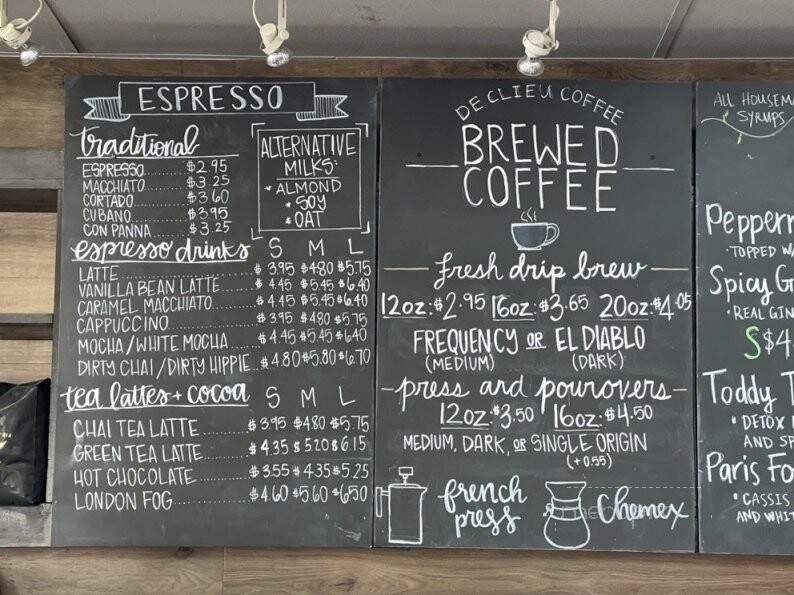 ESPRESSO
traditional
ESPRESSO $2.95
MACCHIATO $3.25
CORTADO $3.60
CUBANO $3.95
CON PANNA $3.25
ALTERNATIVE
MILKS:
ALMOND
SOY
OAT
espresso drinks S M L
LATTE $3.95 $4.80 $5.75
VANILLA BEAN LATTE $4.45 $5.45 $6.40
CARAMEL MACCHIATO $4.45 $5.45 $6.40
CAPPUCCINO $3.95 $4.80 $5.75
MOCHA/WHITE MOCHA $4.45 $5.45 $6.40
DIRTY CHAI/DIRTY HIPPIE $4.80 $5.80 $6.70
tea lattes + cocoa S M L
CHAI TEA LATTE $3.95 $4.80 $5.75
GREEN TEA LATTE $4.35 $5.20 $6.15
HOT CHOCOLATE $3.55 $4.35 $5.25
LONDON FOG $4.60 $5.60 $6.50
DE CLIEU COFFEE
BREWED
COFFEE
fresh drip brew
12oz: $2.95 16oz: $3.65 20oz: $4.05
FREQUENCY OR EL DIABLO
(MEDIUM) (DARK)
press and pourovers
12oz: $3.50 16oz: $4.50
MEDIUM, DARK, OR SINGLE ORIGIN
(+0.55)
french
press
Chemex
ALL HOUSEMA
SYRUPS
Pepperm
• TOPPED W/
Spicy G
• REAL GIN
S $4
Toddy T
• DETOX
AND SP
Paris Fo
• CASSIS
AND WHIT